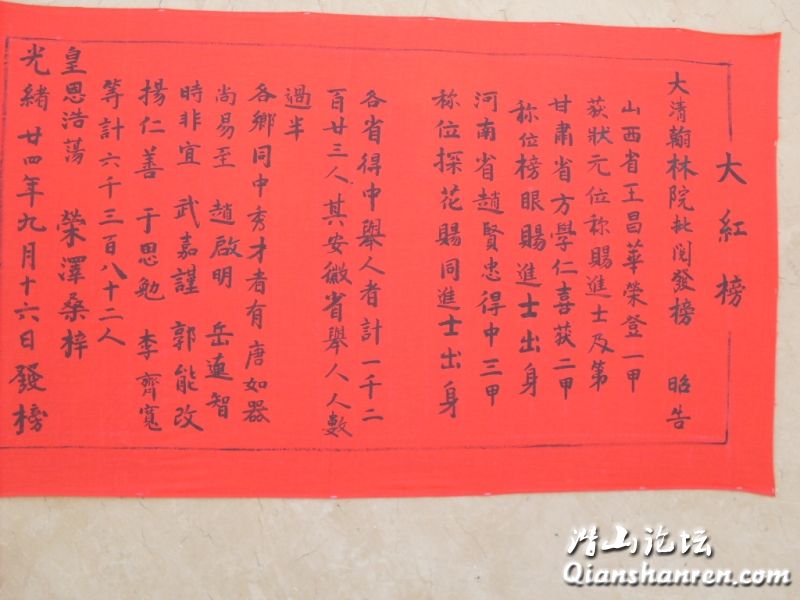 大紅榜
大清翰林院批閱發榜 昭告
山西省王昌華榮登一甲
荻狀元位称賜進士及第
甘肅省方學仁喜荻二甲
称位榜眼賜進士出身
河南省趙賢忠得中三甲
称位探花賜同進士出身
各省得中舉人者計一千二
百廿三人其安徽省舉人人數
過半
各鄉同中秀才者有唐如器
尚易至 趙啟明 岳蓮智
時非宜 武嘉謹 郭能改
揚仁善 于思勉 李齊寬
等計六千三百八十二人
皇恩浩蕩 榮澤桑梓
光緒廿四年九月十六日發榜
潜山论坛
Qianshanren.com